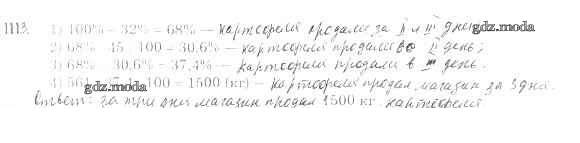 1113. 1) 100% − 32% = 68% – картофеля продали за II и III дни
gdz.moda
2) 68% · 45 : 100 = 30,6% – картофеля продали во II день;
3) 68% − 30,6% = 37,4% – картофеля продали в III день.
4) 561 100 = 1500 (кг) – картофеля продал магазин за 3 дня.
gdz.moda
Ответ: за три дня магазин продал 1500 кг. картофеля